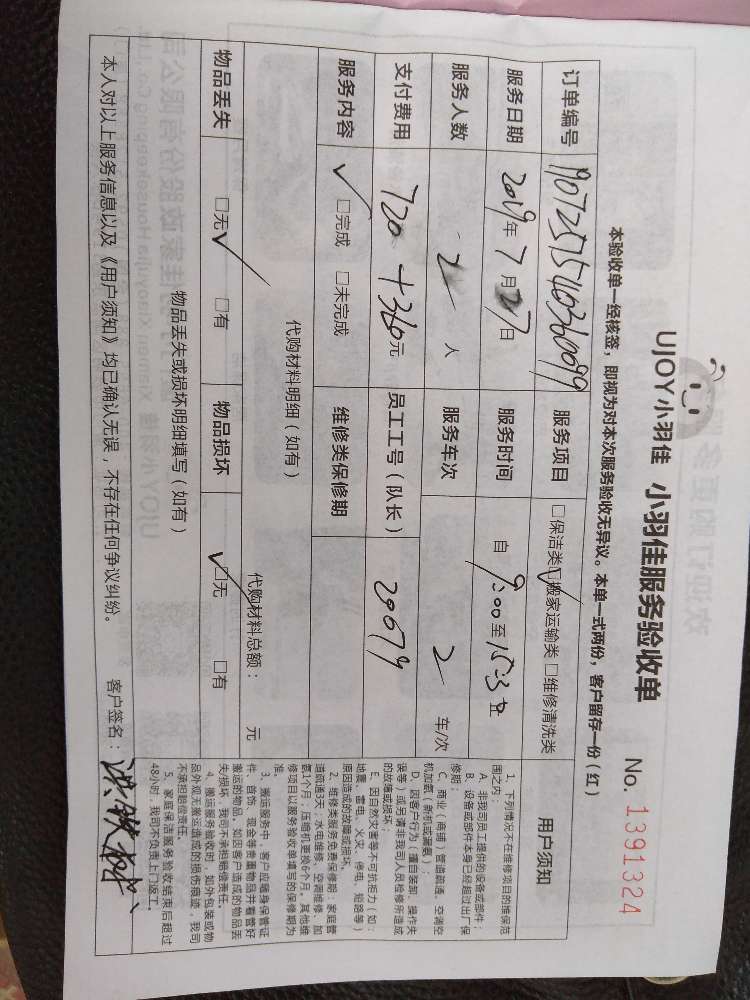 UJOY小羽佳 小羽佳服务验收单
No. 1391324
本验收单一经核签，即视为对本次服务验收无异议。本单一式两份，客户留存一份（红）
订单编号
服务项目 □保洁类 □搬家运输类 □维修清洗类
服务日期 2019年7月27日 服务时间 自9:00至15:30
服务人数 2人 服务车次 2车/次
支付费用 720+360元 员工工号（队长） 20079
服务内容 □完成 □未完成 维修类保修期
代购材料明细（如有）
代购材料总额： 元
物品丢失 □无 □有 物品损坏 □无 □有
物品丢失或损坏明细填写（如有）
本人对以上服务信息以及《用户须知》均已确认无误，不存在任何争议纠纷。 客户签名：
用户须知
1、下列情况不在维修项目的维保范
围之内：
A、非我司员工提供的设备或部件；
B、设备或部件本身已经超过出厂保
修期；
C、商业（商铺）管道疏通、空调空
机加氨（新机或漏氨）；
D、因客户行为（擅自装卸、操作失
误等）或另请非我司人员检修所造成
的故障或损坏；
E、因自然灾害等不可抗拒力（如：
地震、雷电、火灾、停电、短路等）
原因造成的故障或损坏。
2、维修类服务免费保修期：家庭管
道疏通3天；水电维修、空调维修、加
氨1个月；压缩机更换6个月。其他维
修项目以服务验收单填写的保修期为
准。
3、搬运服务中，客户应随身保管证
件、首饰、现金等贵重物品并看管好
搬运的物品，如因客户造成的物品丢
失/损坏，我司不承担赔偿责任。
4、搬运服务验收时，如外包装或物
品外观无搬运造成的损伤痕迹，我司
不承担赔偿责任。
5、家庭保洁服务验收结束后超过
48小时，我司不负责上门返工。